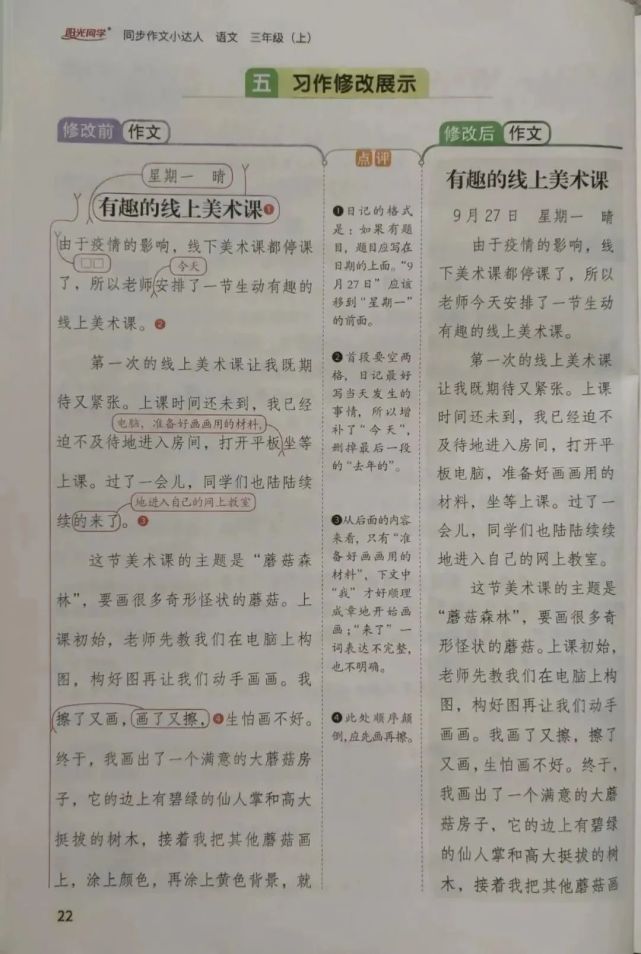 阳光同学 同步作文小达人 语文 三年级（上）
五 习作修改展示
修改前 作文
星期一 晴
有趣的线上美术课❶
由于疫情的影响，线下美术课都停课
□□ 今天
了，所以老师安排了一节生动有趣的
线上美术课。❷
第一次的线上美术课让我既期
待又紧张。上课时间还未到，我已经
电脑，准备好画画用的材料，
迫不及待地进入房间，打开平板坐等
上课。过了一会儿，同学们也陆陆续
地进入自己的网上教室
续的来了。❸
这节美术课的主题是“蘑菇森
林”，要画很多奇形怪状的蘑菇。上
课初始，老师先教我们在电脑上构
图，构好图再让我们动手画画。我
擦了又画，画了又擦，❹生怕画不好。
终于，我画出了一个满意的大蘑菇房
子，它的边上有碧绿的仙人掌和高大
挺拔的树木，接着我把其他蘑菇画
上，涂上颜色，再涂上黄色背景，就
点评
❶日记的格式
是：如果有题
目，题目应写在
日期的上面。“9
月27日”应该
移到“星期一”
的前面。
❷首段要空两
格，日记最好
写当天发生的
事情，所以增
补了“今天”，
删掉最后一段
的“去年的”。
❸从后面的内容
来看，只有“准
备好画画用的
材料”，下文中
“我”才好顺理
成章地开始画
画；“来了”一
词表达不完整，
也不明确。
❹此处顺序颠
倒，应先画再擦。
修改后 作文
有趣的线上美术课
9月27日 星期一 晴
由于疫情的影响，线
下美术课都停课了，所以
老师今天安排了一节生动
有趣的线上美术课。
第一次的线上美术课
让我既期待又紧张。上课
时间还未到，我已经迫不
及待地进入房间，打开平
板电脑，准备好画画用的
材料，坐等上课。过了一
会儿，同学们也陆陆续续
地进入自己的网上教室。
这节美术课的主题是
“蘑菇森林”，要画很多奇
形怪状的蘑菇。上课初始，
老师先教我们在电脑上构
图，构好图再让我们动手
画画。我画了又擦，擦了
又画，生怕画不好。终于，
我画出了一个满意的大蘑
菇房子，它的边上有碧绿
的仙人掌和高大挺拔的树
木，接着我把其他蘑菇画
22